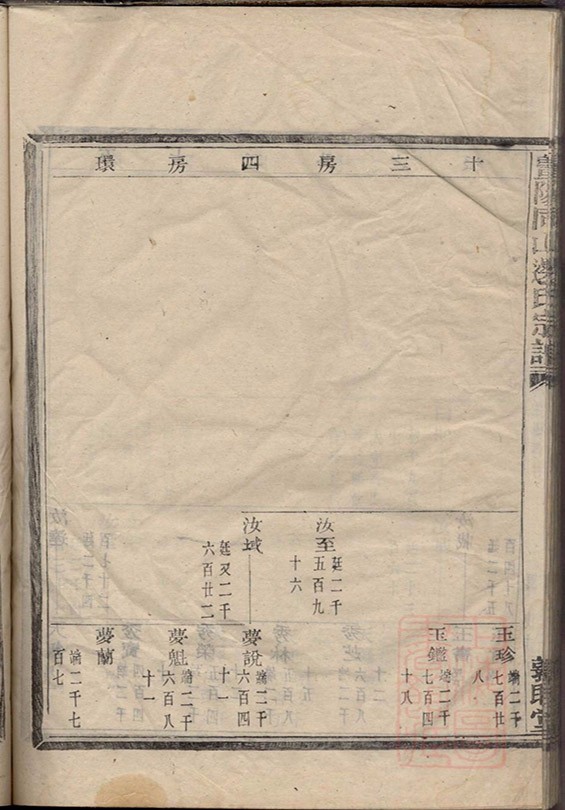 十三房四房環
汝至 廷二千
五百九
十六
汝域 廷又二千
六百廿二
玉珍 端二千
七百廿
八
玉鑑 端二千
七百四
十八
夢說 端二千
六百四
十一
夢魁 端二千
六百八
十一
夢蘭 端二千七
百七
氏宗譜
敦睦堂